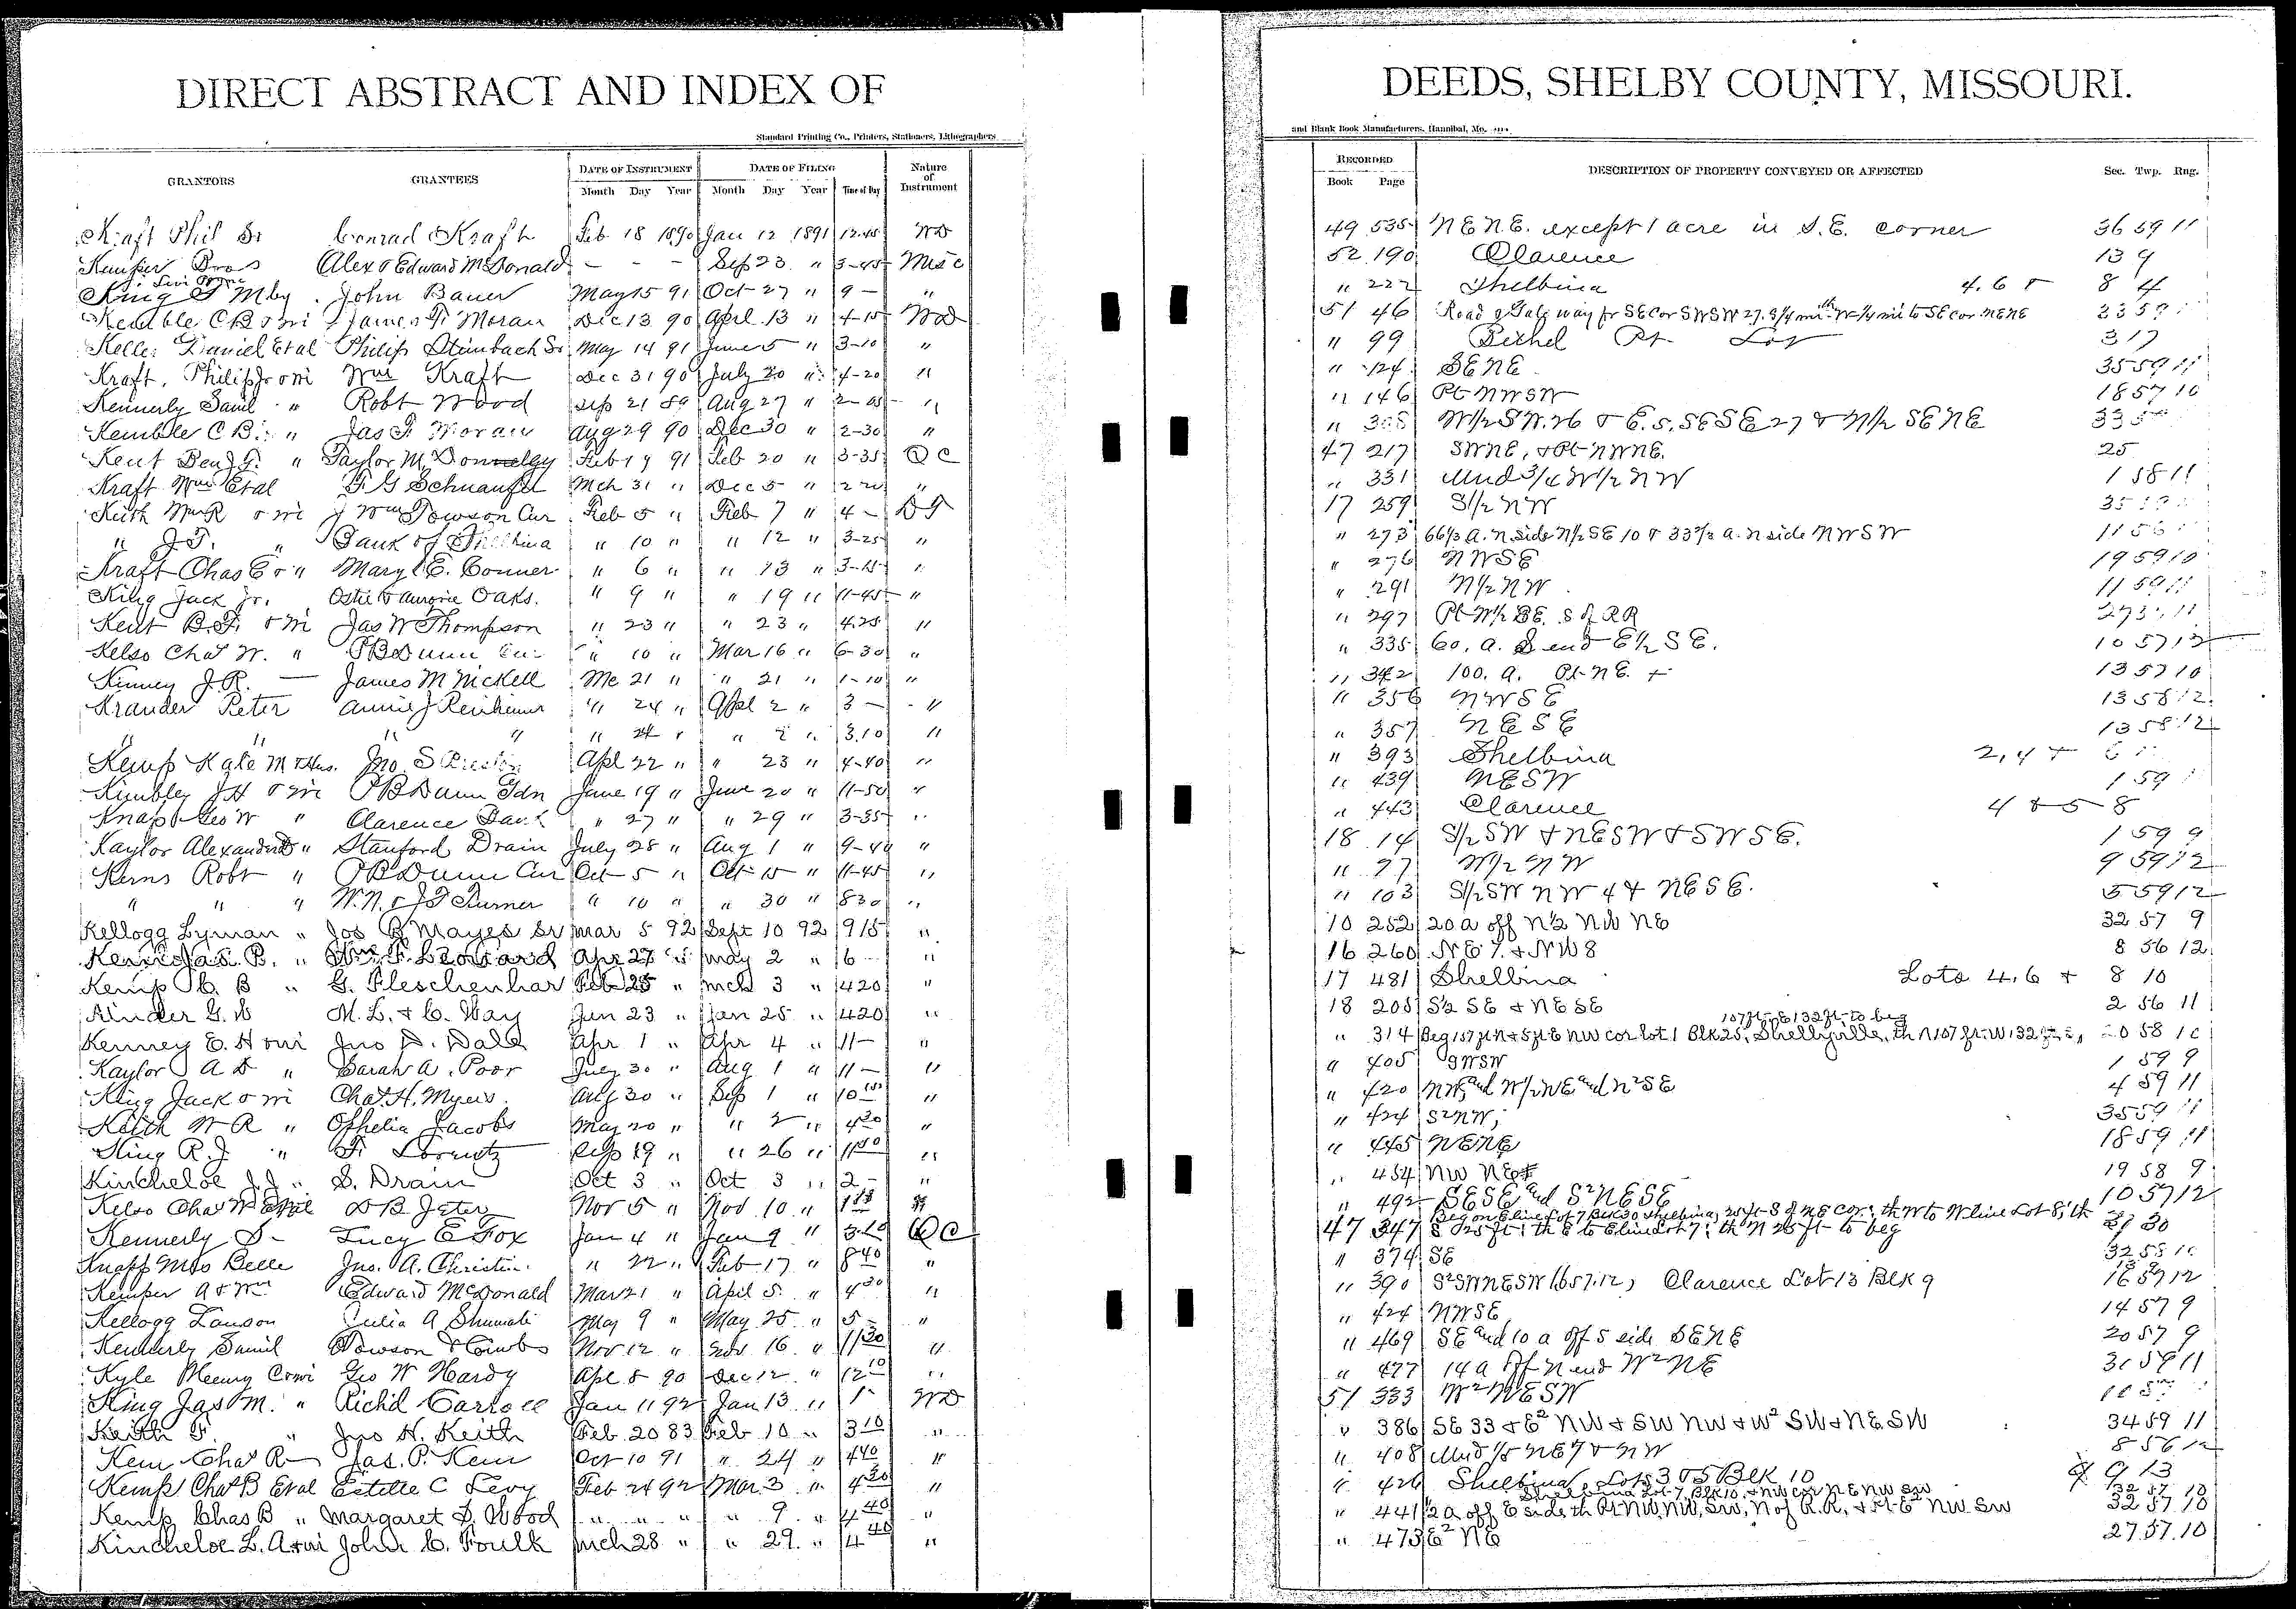 DIRECT ABSTRACT AND INDEX OF
Standard Printing Co., Printers, Stationers, Lithographers
GRANTORS GRANTEES DATE OF INSTRUMENT DATE OF FILING Nature of Instrument
Month Day Year Month Day Year Time of Day
Kraft Phil Sr Conrad Kraft Feb 18 1890 Jan 12 1891 12-45 WD
Kemper Bros Alex & Edward McDonald - - - Sep 23 " 3-45 Misc
King J M by John Bauer May 15 91 Oct 27 " 9 - "
Kemble C B & wi James F Moran Dec 13 90 Aprl 13 " 4-15 WD
Keller Daniel Etal Philip Steinbach Sr May 14 91 June 5 " 3-10 "
Kraft, Philip Jr & wi Wm Kraft Dec 31 90 July 20 " 4-20 "
Kennerly Saml " Robt Wood Sep 21 89 Aug 27 " 2-05 "
Kemble C B " Jas F Moran Aug 29 90 Dec 30 " 2-30 "
Kent Benj F. " Taylor M Feb 19 91 Feb 20 " 3-35 QC
Kraft Wm Etal F G Schnaufer Mch 31 " Dec 5 " 2 20 "
Keith Wm R & wi Wm Towson Cur Feb 5 " Feb 7 " 4 - DT
" J T. " Bank of Shelbina " 10 " " 12 " 3-25 "
Kraft Chas E & " Mary E. Conner " 6 " " 13 " 3-15 "
King Jack Jr. Oaks. " 9 " " 19 " 11-45 "
Kent B. F. & wi Jas W Thompson " 23 " " 23 " 4.25 "
Kelso Chas W. " P B Dunn Cur " 10 " Mar 16 " 6-30 "
Kinney J. R. — James M Nickell Mc 21 " " 21 " 1-10 "
Krauder Peter Annie J " 24 " Apl 2 " 3 - "
" " " " " 24 " " 2 " 3.10 "
Kemp Kate M & Hus. Jno. S Preston Apl 22 " " 23 " 4-40 "
Kimbley J H & wi P B Dunn Gdn June 19 " June 20 " 11-50 "
Knapp Geo W " Clarence Bank " 27 " " 29 " 3-35 "
Kaylor Alexander D " Stanford Drain July 28 " Aug 1 " 9-40 "
Kerns Robt " P B Dunn Cur Oct 5 " Oct 15 " 11-45 "
" " " W. N. & J T Turner " 10 " " 30 " 8 30 "
Kellogg Lyman " Jos B Mayes Sr Mar 5 92 Sept 10 92 9 15 "
Kern Jas. P. " Wm. F. Leonard Apr 27 " May 2 " 6 - "
Kemp C. B " G. Fleschenhar Feb 25 " Mch 3 " 4 20 "
Kinder G. W M. L. & C. Way Jun 23 " Jan 25 " 4 20 "
Kenney E. H & wi Jno D. Dale Apr 1 " Apr 4 " 11 - "
Kaylor A D " Sarah A. Poor July 30 " Aug 1 " 11 - "
King Jack & wi Chas. H. Myers. Aug 30 " Sep 1 " 10 "
Keith W R " Ophelia Jacobs May 20 " " 2 " 4 30 "
King R. J " F. Lorentz Sep 19 " " 26 " 11 50 "
Kincheloe J. J " S. Drain Oct 3 " Oct 3 " 2 - "
Kelso Chas W Etal D B Jeter Nov 5 " Nov 10 " 1 "
Kennerly S - Lucy E Fox Jan 4 " Jan 9 " 3 10 QC
Knapp Mrs Belle Jno. A. Christin " 22 " Feb 17 " 8 40 "
Kemper A & Wm Edward McDonald Mar 21 " April 5 " 4 30 "
Kellogg Lauson Julia A Shumate May 9 " May 25 " 5 - "
Kennerly Samil Towson & Combs Nov 12 " Nov 16 " 11 30 "
Kyle Henry C & wi Geo W Hardy Apl 8 90 Dec 12 " 12 10 "
King Jas M. " Richd Carroll Jan 11 92 Jan 13 " 1 WD
Keith F. " Jno H. Keith Feb 20 83 Feb 10 " 3 10 "
Kern Chas R — Jas. P. Kern Oct 10 91 " 24 " 4 40 "
Kemp Chas B Etal Estelle C Levy Feb 24 92 Mar 3 " 4 30 "
Kemp Chas B " Margaret S. Wood " " " " 9 " 4 40 "
Kincheloe L. A & wi John C. Foulk Mch 28 " " 29 " 4 40 "
DEEDS, SHELBY COUNTY, MISSOURI.
and Blank Book Manufacturers, Hannibal, Mo.
RECORDED DESCRIPTION OF PROPERTY CONVEYED OR AFFECTED Sec. Twp. Rng.
Book Page
49 535 NENE. except 1 acre in S.E. corner 36 59 11
52 190 Clarence 13 9
" 222 Shelbina 4. 6 & 8 4
51 46 Road & Gate way fr SE Cor SWSW 27. 3/4 mi th W 1/4 mi to SE cor NENE
" 99 Bethel Pt Lot 3 17
" 124 SENE 35 59 11
" 146 Pt NWSW 18 57 10
" W1/2 SW. 26 & E. S. SESE 27 & N1/2 SENE
47 217 SWNE, & Pt NWNE. 25
" 331 Und 3/4 W1/2 NW 1 58 11
17 259 S1/2 NW
" 273 66 2/3 a. N side N1/2 SE 10 & 33 1/3 a. N side NWSW 11 56
" 276 NWSE 19 59 10
" 291 N1/2 NW 11 59 11
" 297 Pt W1/2 SE. S of RR
" 335 60. a. S end E1/2 SE. 10 57 12
" 342 100. a. Pt NE. + 13 57 10
" 356 NWSE 13 58 12
" 357 NESE 13 58 12
" 393 Shelbina 2, 4 &
" 439 NESW 1 59
" 443 Clarence 4 & 5 8
18 14 S1/2 SW & NESW & SWSE. 1 59 9
" 77 W1/2 NW 9 59 12
" 103 S1/2 SW NW 4 & NESE. 5 59 12
10 252 20 a off N1/2 NW NE 32 57 9
16 260 NE 7. & NW 8 8 56 12
17 481 Shelbina Lots 4. 6 & 8 10
18 205 S1/2 SE & NESE 2 56 11
107 ft - E 132 ft to beg
" 314 Beg 157 ft N & 5 ft E NW cor lot 1 Blk 25, Shelbyville, th N 107 ft. W 132 58 10
" 405 SWSW 1 59 9
" 420 NW, and W1/2 NE and N2 SE 4 59 11
" 424 S2 NW; 35 59 11
" 445 NENE 18 59 11
" 454 NW NE 19 58 9
" 492 SESE and S2 NESE 10 57 12
Beg on E line Lot 7 Blk 30 Shelbina, 25 ft S of NE cor; th W to W line Lot 8; th
47 347 S 125 ft; th E to E line Lot 7; th N 25 ft to beg 30
" 374 SE 32 58 10
" 390 S2 SW NESW 16. 57. 12, Clarence Lot 13 Blk 9 16 57 12
" 424 NWSE 14 57 9
" 469 SE and 10 a off S side SENE 20 57 9
" 477 14 a Off N end W2 NE 31 59 11
51 333 W2 NESW
" 386 SE 33 & E2 NW & SW NW & W2 SW & NE SW 34 59 11
" 408 Und 1/5 NE 7 & NW 8 56 12
" 426 Shelbina Lots 3 & 5 Blk 10 9 13
Shelbina Lot 7, Blk 10, & NW cor NE NW SW 32 57 10
" 441 2 a off E side th Pt NW, NW, SW, N of R.R. & Pt E2 NW SW 32 57 10
" 473 E2 NE 27. 57. 10